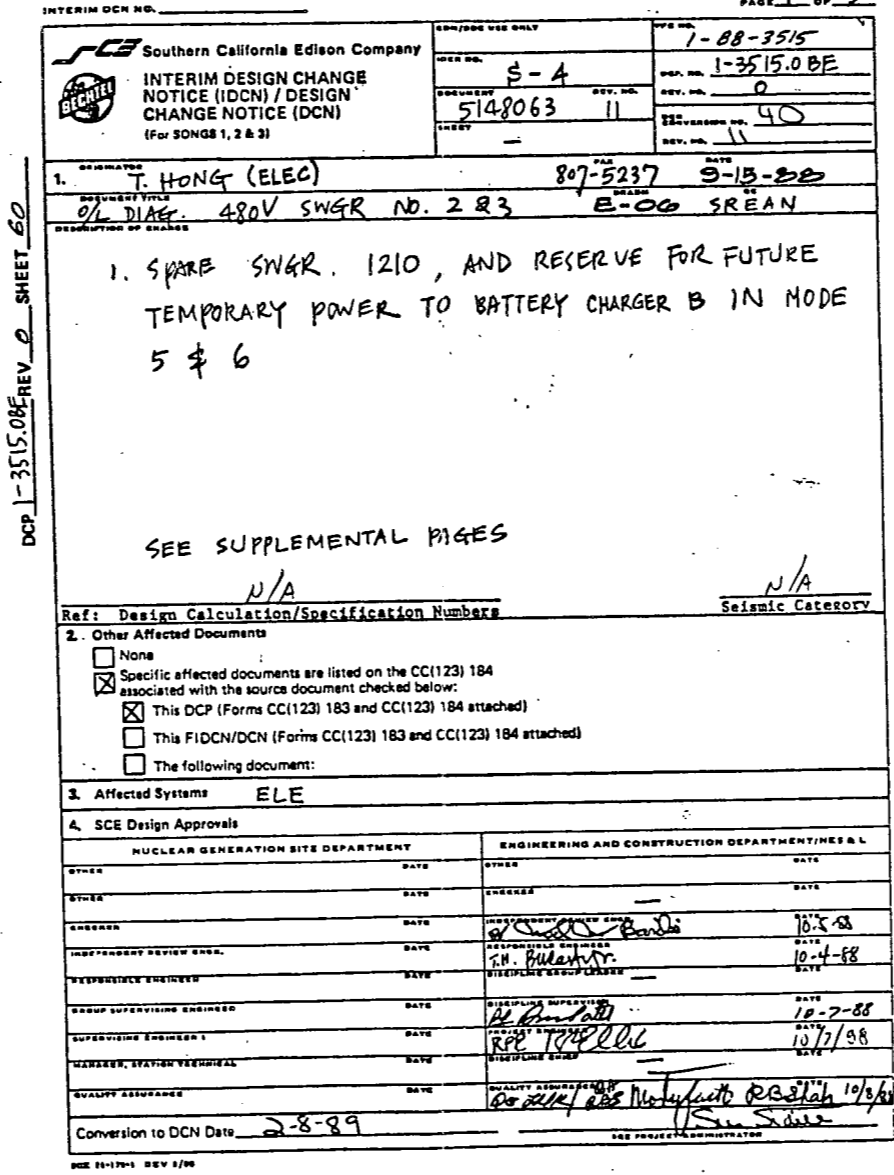 INTERIM DCN NO.
PAGE 1 OF
Southern California Edison Company
BECHTEL
INTERIM DESIGN CHANGE
NOTICE (IDCN) / DESIGN
CHANGE NOTICE (DCN)
(For SONGS 1, 2 & 3)
EDM/DOC USE ONLY
S-4
DOCUMENT REV. NO.
5148063 11
SHEET
—
1-88-3515
1-3515.0 BE
REV. NO. 0
CONVERSION NO. 40
REV. NO. 11
DCP 1-3515.0BE REV 0 SHEET 60
1. ORIGINATOR T. HONG (ELEC) PAX 807-5237 DATE 9-15-88
DOCUMENT TITLE O/L DIAG. 480V SWGR NO. 2 & 3 E-06 SREAN
DESCRIPTION OF CHANGE
1. SPARE SWGR. 1210, AND RESERVE FOR FUTURE
TEMPORARY POWER TO BATTERY CHARGER B IN MODE
5 & 6
SEE SUPPLEMENTAL PAGES
N/A N/A
Ref: Design Calculation/Specification Numbers Seismic Category
2. Other Affected Documents
None
Specific affected documents are listed on the CC(123) 184
associated with the source document checked below:
This DCP (Forms CC(123) 183 and CC(123) 184 attached)
This FIDCN/DCN (Forms CC(123) 183 and CC(123) 184 attached)
The following document:
3. Affected Systems ELE
4. SCE Design Approvals
NUCLEAR GENERATION SITE DEPARTMENT ENGINEERING AND CONSTRUCTION DEPARTMENT/NES & L
OTHER DATE OTHER DATE
OTHER DATE CHECKER — DATE
CHECKER DATE INDEPENDENT REVIEW ENGR. 10-5-88
INDEPENDENT REVIEW ENGR. DATE RESPONSIBLE ENGINEER T.H. DATE 10-4-88
RESPONSIBLE ENGINEER DATE DISCIPLINE GROUP LEADER — DATE
GROUP SUPERVISING ENGINEER DATE DISCIPLINE SUPERVISOR DATE 10-7-88
SUPERVISING ENGINEER DATE PROJECT ENGINEER RPE DATE 10/7/98
MANAGER, STATION TECHNICAL DATE DISCIPLINE CHIEF —
QUALITY ASSURANCE DATE QUALITY ASSURANCE RBShah
Conversion to DCN Date 2-8-89 SCE PROJECT ADMINISTRATOR